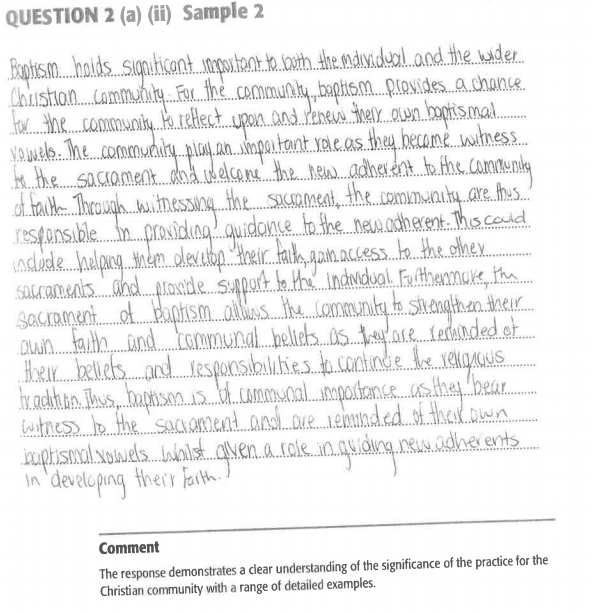 QUESTION 2 (a) (ii) Sample 2
Baptism holds significant important to both the individual and the wider
Christian community. For the community, baptism provides a chance
for the community to reflect upon and renew their own baptismal
vowels. The community play an important role as they become witness
to the sacrament and welcome the new adherent to the community
of faith. Through witnessing the sacrament, the community are thus
responsible in providing guidance to the new adherent. This could
include helping them develop their faith, gain access to the other
sacraments and provide support to the individual. Furthermore, the
sacrament of baptism allows the community to strengthen their
own faith and communal beliefs as they are reminded of
their beliefs and responsibilities to continue the religious
tradition. Thus, baptism is of communal importance as they bear
witness to the sacrament and are reminded of their own
baptismal vowels whilst given a role in guiding new adherents
in developing their faith.
Comment
The response demonstrates a clear understanding of the significance of the practice for the
Christian community with a range of detailed examples.